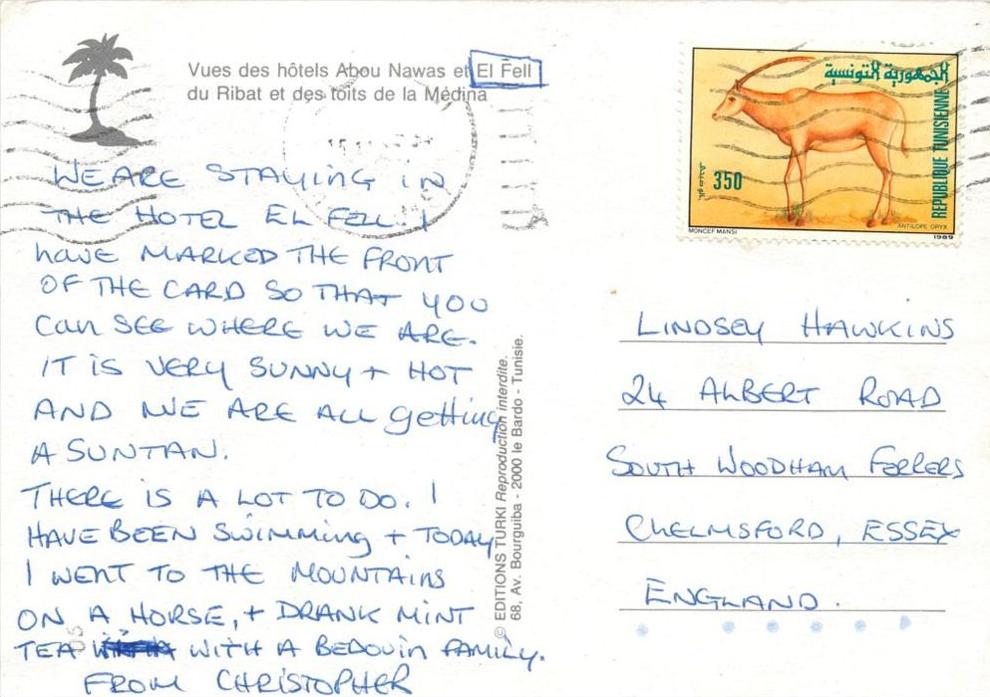 Vues des hôtels Abou Nawas et El Fell
du Ribat et des toits de la Médina
WE ARE STAYING IN
THE HOTEL EL FELL. I
HAVE MARKED THE FRONT
OF THE CARD SO THAT YOU
CAN SEE WHERE WE ARE.
IT IS VERY SUNNY + HOT
AND WE ARE ALL getting
A SUNTAN.
THERE IS A LOT TO DO. I
HAVE BEEN SWIMMING + TODAY
I WENT TO THE MOUNTAINS
ON A HORSE, + DRANK MINT
TEA WITH A BEDOUIN FAMILY.
FROM CHRISTOPHER
© EDITIONS TURKI Reproduction interdite.
68, Av. Bourguiba - 2000 le Bardo - Tunisie.
الجمهورية التونسية
REPUBLIQUE TUNISIENNE
350
MONCEF MANSI
ANTILOPE ORYX
1989
LINDSEY HAWKINS
24 ALBERT ROAD
SOUTH WOODHAM FERRERS
CHELMSFORD, ESSEX
ENGLAND.